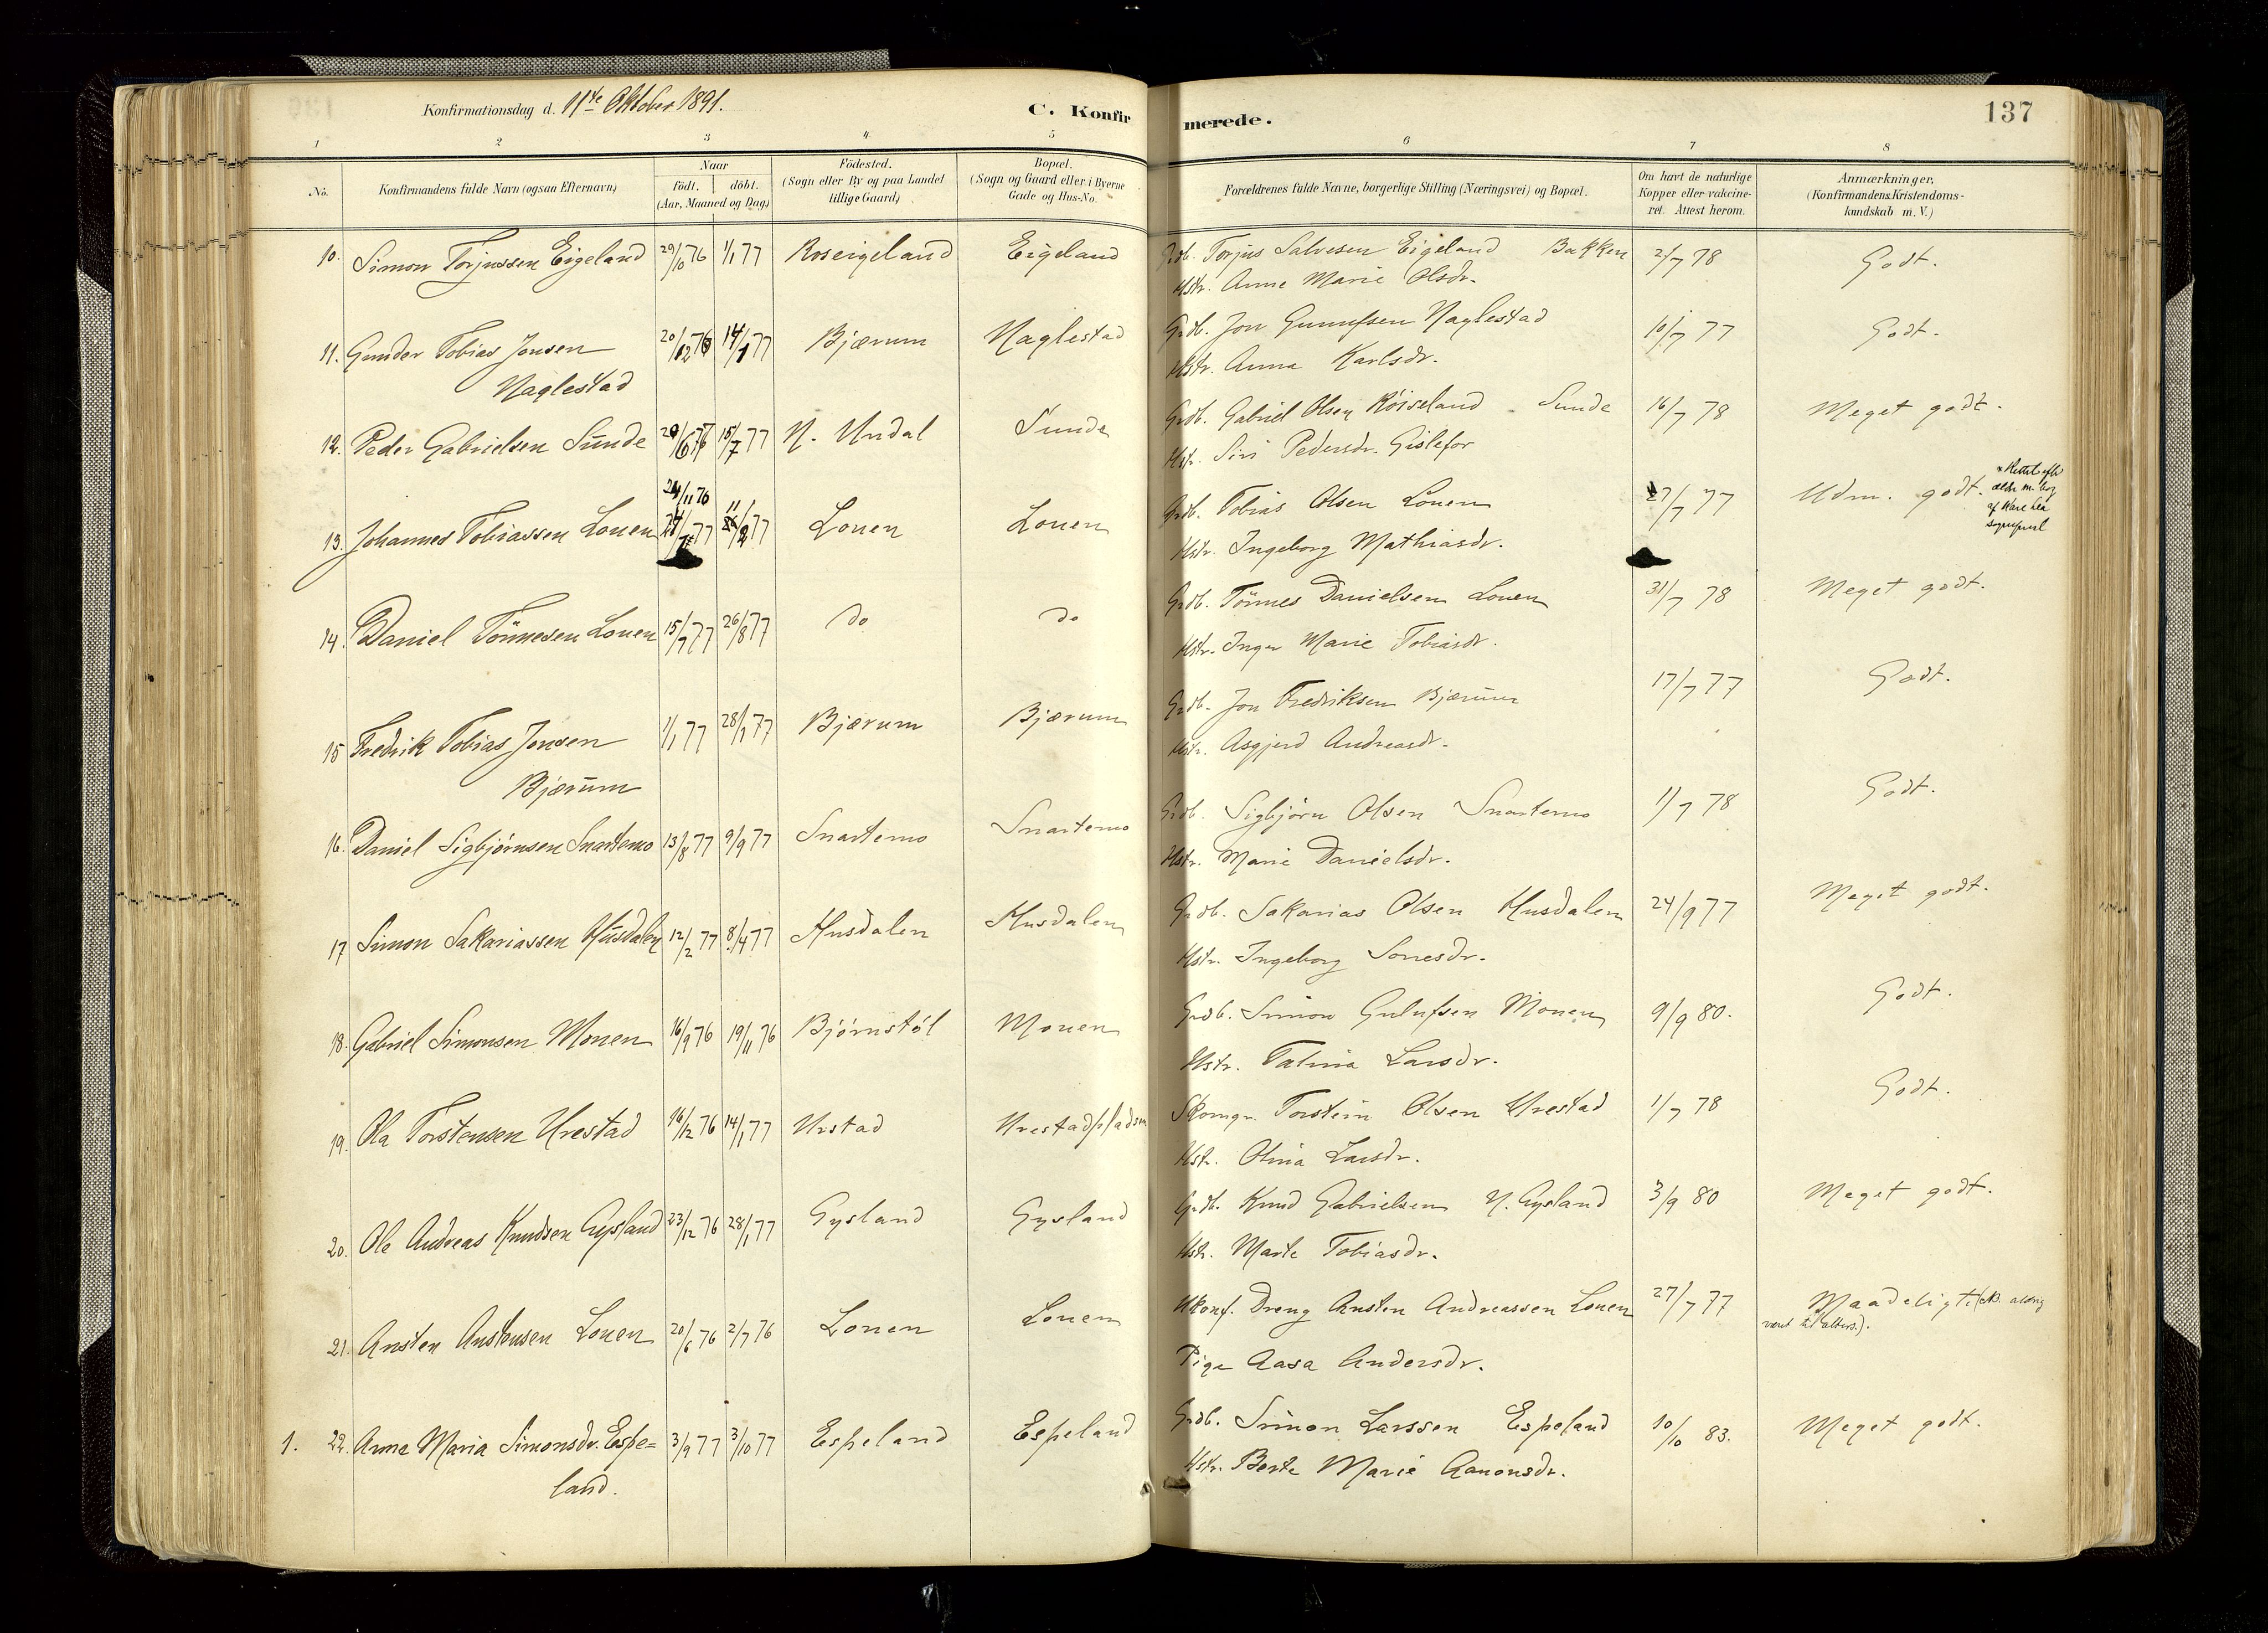 Konfirmationsdag d. 11te Oktober 1891.
C. Konfirmerede.
137
1 2 3 4 5 6 7 8
No. Konfirmandens fulde Navn (ogsaa Efternavn) Naar født. døbt. (Aar, Maaned og Dag) Fødested. (Sogn eller By og paa Landet tillige Gaard) Bopæl. (Sogn og Gaard eller i Byerne Gade og Hus-No. Forældrenes fulde Navne, borgerlige Stilling (Næringsvei) og Bopæl. Om havt de naturlige Kopper eller vakcineret. Attest herom. Anmærkninger, (Konfirmandens Kristendomskundskab m. V.)
10. Simon Torjussen Eigeland 29/10 76 1/1 77 Roseigeland Eigeland Grdb. Torjus Salvesen Eigeland Bakken 2/7 78 Godt.
Hstr. Anne Marie Olsdr.
11. Gunder Tobias Jonsen 20/12 76 14/1 77 Bjærum Naglestad Grdb. Jon Gunufsen Naglestad 10/7 77 Godt.
Naglestad Hstr. Anna Karlsdr.
12. Peder Gabrielsen Sunde 15/7 77 N. Undal Sunde Grdb. Gabriel Olsen Röiseland Sunde 16/7 78 Meget godt.
Hstr. Siri Pedersdr. Gislefor
24/11 76
13. Johannes Tobiassen Lonen Lonen Lonen Grdb. Tobias Olsen Lonen 27/7 77 Udm. godt.
Hstr. Ingeborg Mathiasdr.
14. Daniel Tönnesen Lonen 15/7 77 26/8 77 do do Grdb. Tönnes Danielsen Lonen 31/7 78 Meget godt.
Hstr. Inger Marie Tobiasdr.
15 Fredrik Tobias Jonsen 1/1 77 28/1 77 Bjærum Bjærum Grdb. Jon Fredriksen Bjærum 17/7 77 Godt.
Bjærum Hstr. Asgjerd Andreasdr.
16. Daniel Sigbjørnsen Snartemo 13/8 77 9/9 77 Snartemo Snartemo Grdb. Sigbjörn Olsen Snartemo 1/7 78 Godt.
Hstr. Marie Danielsdr.
17 Simon Sakariassen Husdalen 12/2 77 8/4 77 Husdalen Husdalen Grdb. Sakarias Olsen Husdalen 24/9 77 Meget godt.
Hstr. Ingeborg Sonesdr.
18. Gabriel Simonsen Monen 16/9 76 19/11 76 Bjørnstøl Monen Grdb. Simon Gulufsen Monen 9/9 80. Godt.
Hstr. Talina Larsdr.
19. Ola Torstensen Urestad 16/12 76 14/1 77 Urstad Urestadpladsen Skomgr. Torstein Olsen Urestad 1/7 78 Godt.
Hstr. Olina Larsdr.
20. Ole Andreas Knudsen Gysland 23/12 76 28/1 77 Gysland Gysland Grdb. Knud Gabrielsen N. Gysland 3/9 80 Meget godt.
Hstr. Marte Tobiasdr.
21. Ansten Anstensen Lonen 20/6 76 2/7 76 Lonen Lonen Ukonf. Dreng Ansten Andreassen Lonen 27/7 77 Maadeligt (NB. aldrig
været til alters).
Pige Aasa Andersdr.
1. 22. Anna Maria Simonsdr. Espe= 3/9 77 3/10 77 Espeland Espeland Grdb. Simon Larssen Espeland 10/10 83. Meget godt.
land. Hstr. Berte Marie Aanonsdr.